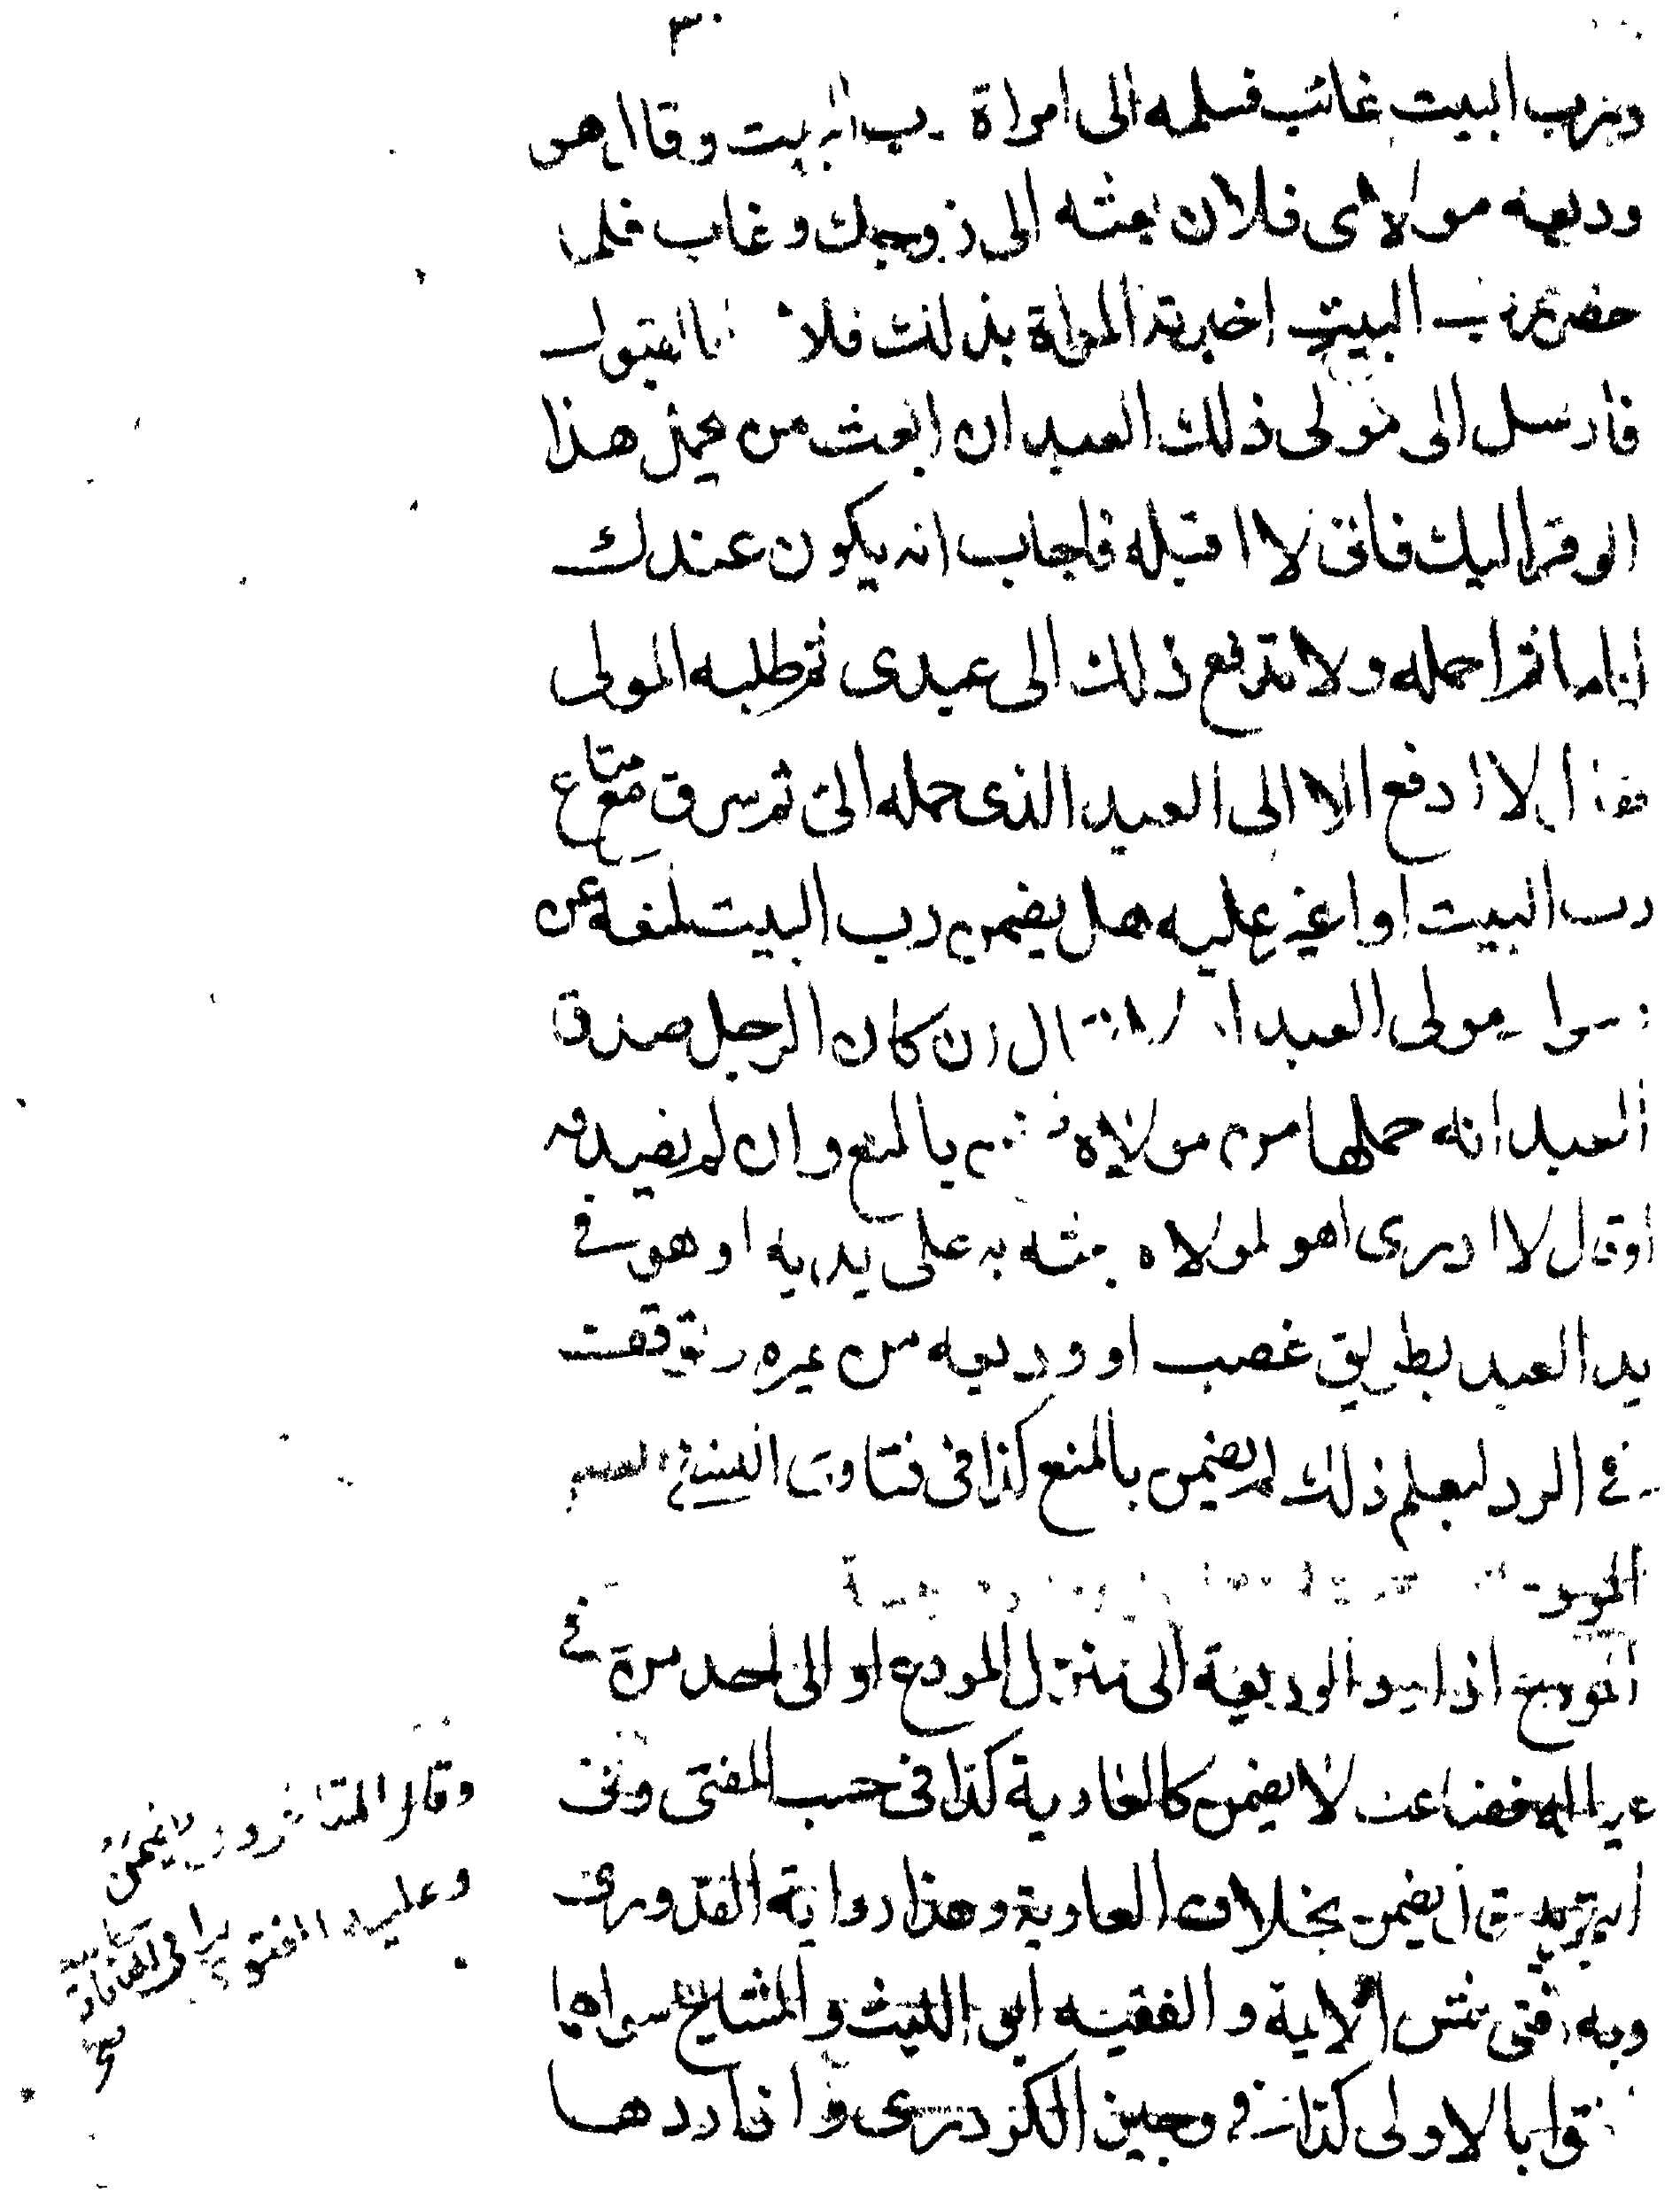 ٣٠
ورب البيت غائب فسلمه الى امراة رب البيت وقال هو
وديعه مولاى فلان بعثه الى زوجك وغاب فلما
حضر رب البيت اخبرته المراة بذلك فلا القبول
فارسل الى مولى ذلك العبد ان ابعث من يحمل هذا
الوقر اليك فانى لا اقبله فاجاب انه يكون عندك
اياما ثم احمله ولا تدفع ذلك الى عبدى ثم طلبه المولى
فقال لا ادفع الا الى العبد الذى حمله الى ثم سرق متاع
رب البيت او اغير عليه هل يضمن رب البيت بمنعه عن
مولى العبد قال ان كان الرجل صدق
العبد انه حملها من مولاه يضمن بالمنع وان لم يصدقه
او قال لا ادرى اهو لمولاه بعثه به على يديه او هو فى
يد العبد بطريق غصب او وديعه من غيره وتوقف
فى الرد ليعلم ذلك لم يضمن بالمنع كذا فى فتاوى النسفى
اذا رد الوديعة الى منزل المودع او الى احد من فى
عياله فضاعت لا يضمن كالعارية كذا فى حسب المفتى وفى
يضمن بخلاف العارية وهذا رواية القدورى
وبه افتى شمس الايمة والفقيه ابو الليث والمشايخ سواها
افتوا بالاولى كذا فى وجيز الكردرى واذا ردها
وقال المتاخرون لا يضمن
وعليه الفتوى